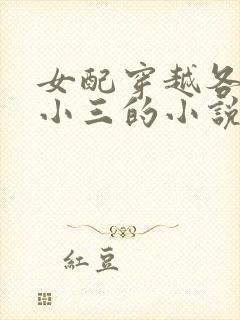 女配穿越各
小三的小説
紅豆